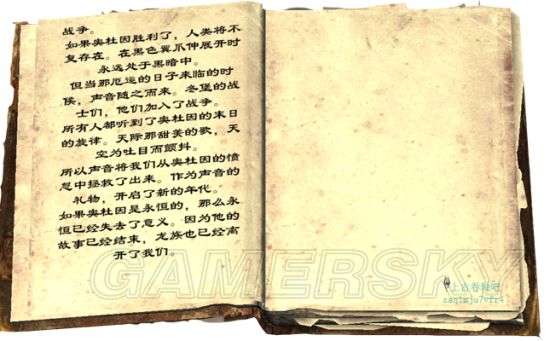 战争。
如果奥杜因胜利了，人类将不
复存在。在黑色翼爪伸展开时
永远处于黑暗中。
但当那厄运的日子来临的时
候，声音随之而来。冬堡的战
士们，他们加入了战争。
所有人都听到了奥杜因的末日
的旋律。天际那甜美的歌，天
空为吐目而颤抖。
所以声音将我们从奥杜因的愤
怒中拯救了出来。作为声音的
礼物，开启了新的年代。
如果奥杜因是永恒的，那么永
恒已经失去了意义。因为他的
故事已经结束，龙族也已经离
开了我们。
GAMERSKY
上古卷轴吧
zaq1mju7vfr4